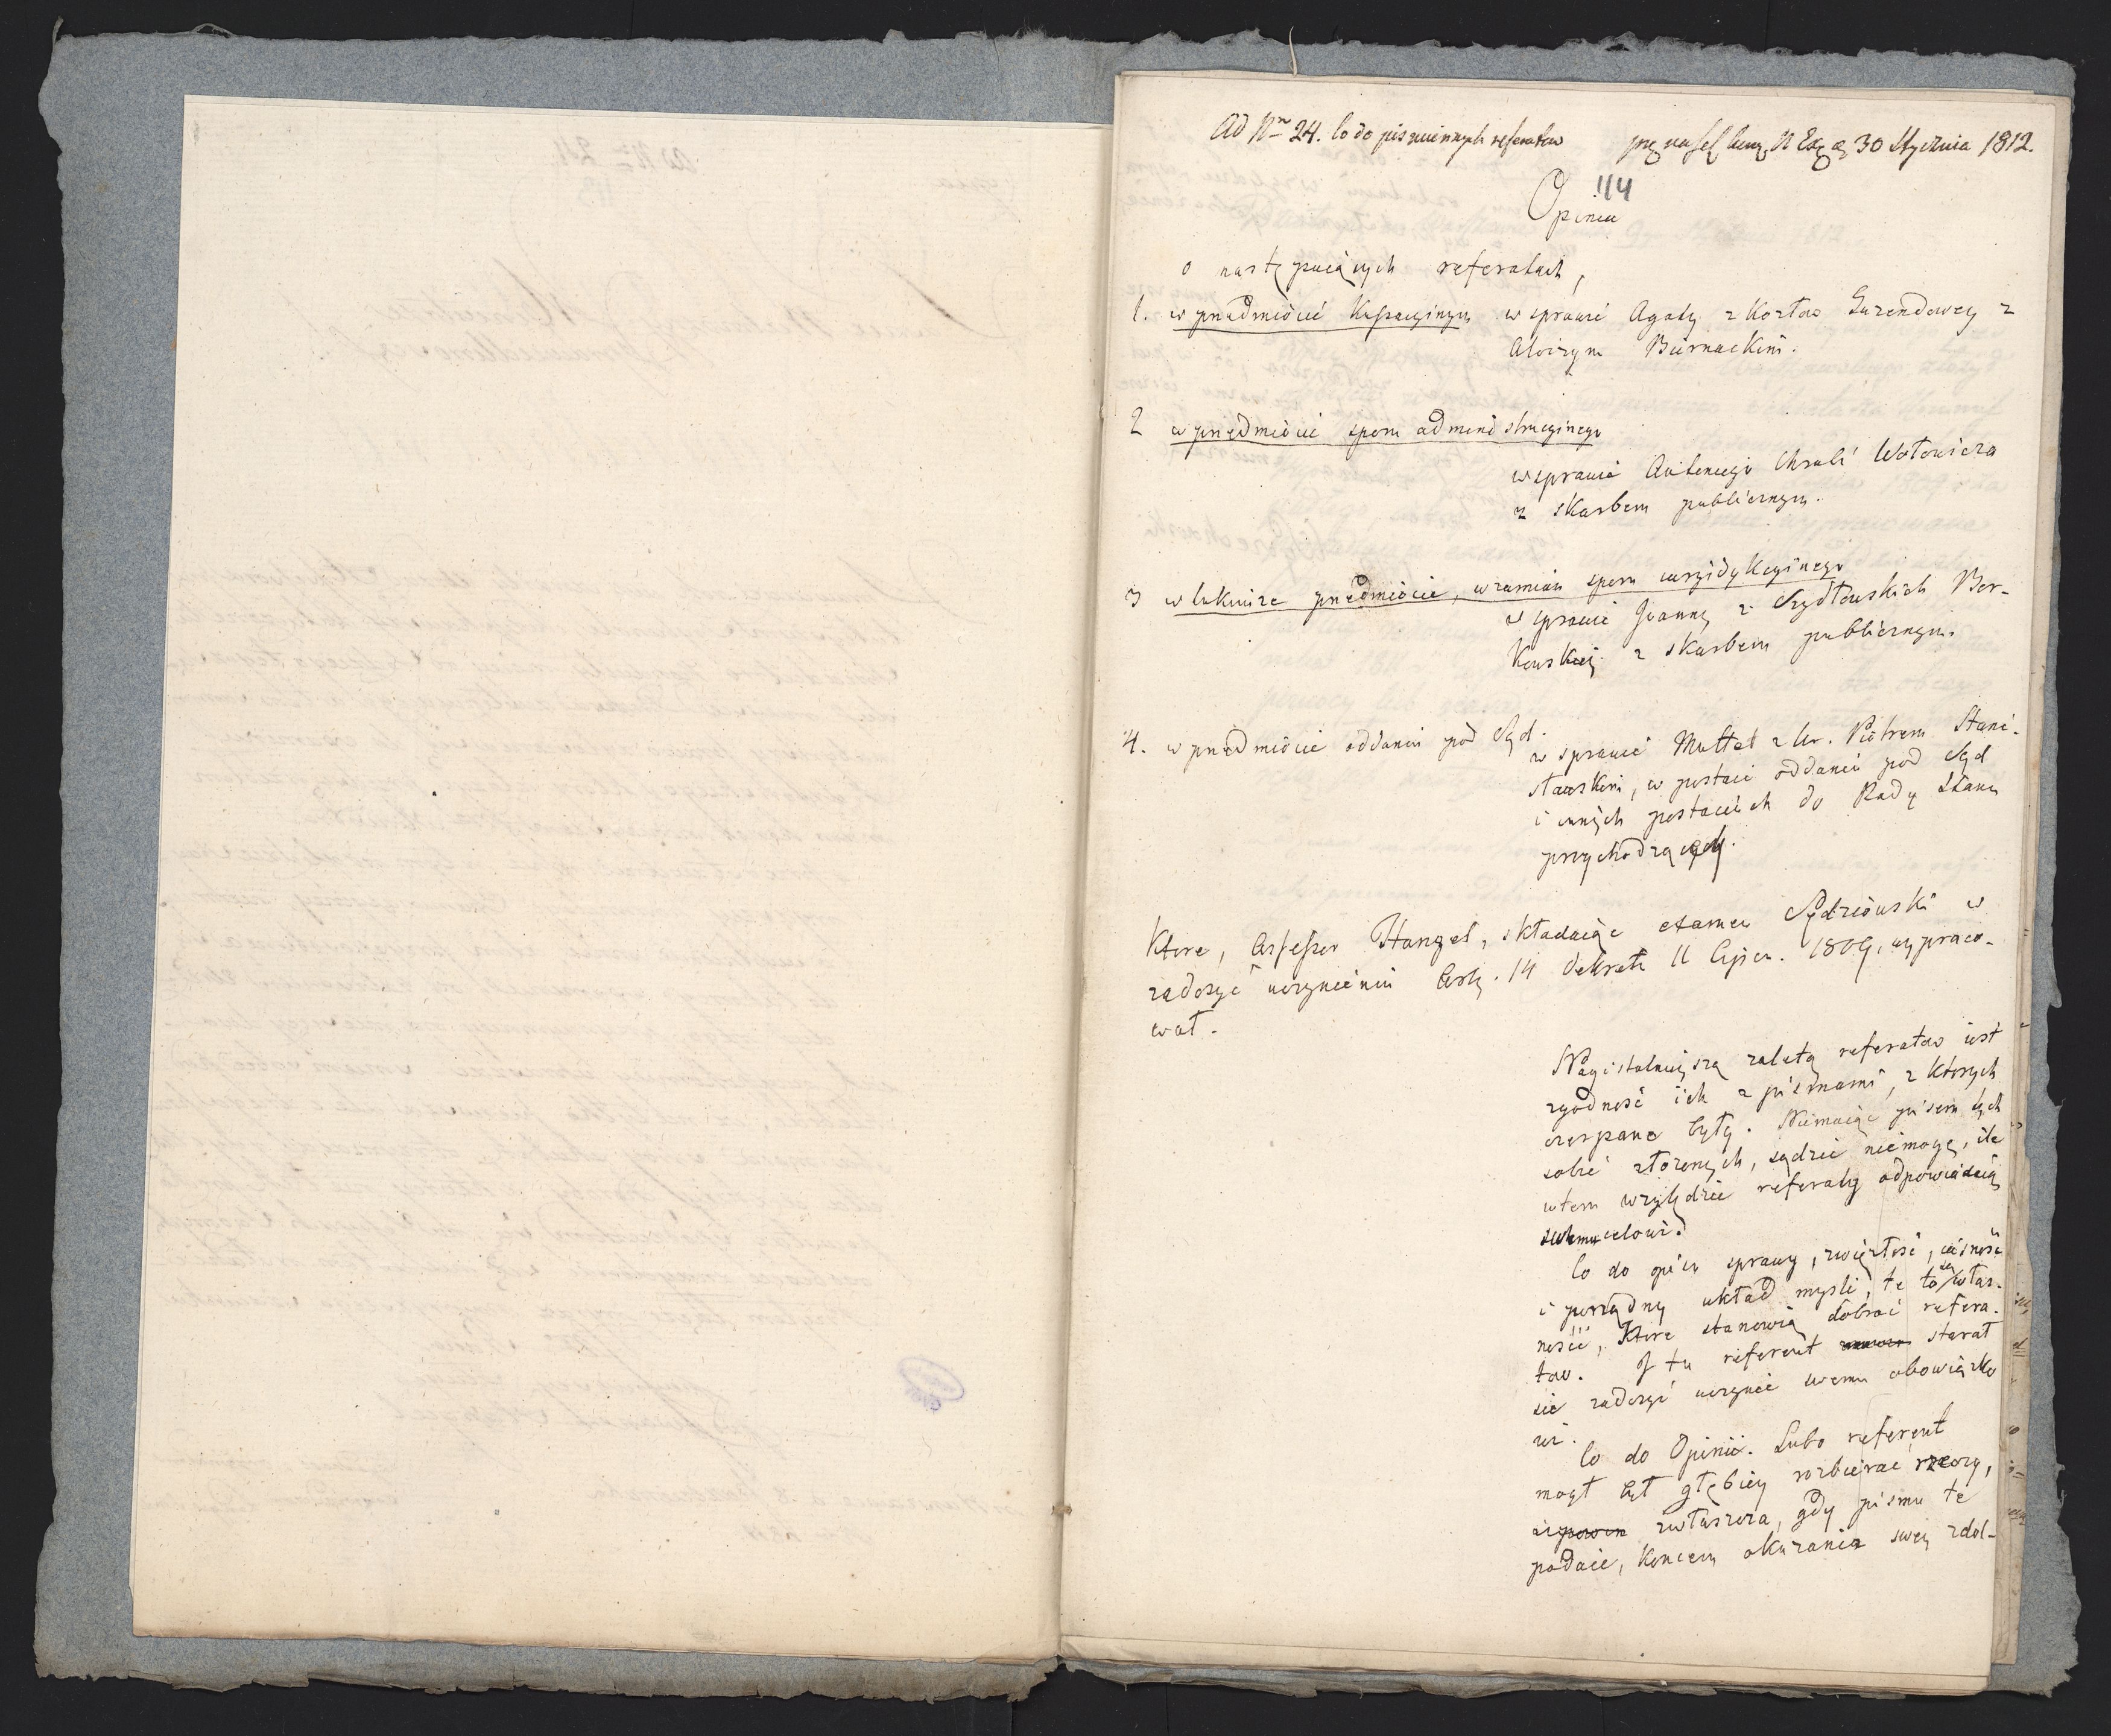 Ad Nro 24. Co do piśmiennych referatow 30 Stycznia 1812.
114
Opinia
o następuiących referatach,
1. w przedmiocie Kassacyinym w sprawie Agaty z Kozłow Zurendowey z
Aloizym Biernackim.
2 w przedmiocie sporu administracyinego
w sprawie Antoniego Hrabi Wołowicza
z skarbem publicznym.
3 w takimże przedmiocie, wzamian sporu iuryzdykcyinego
w sprawie Joanny z Szydłowskich Bor-
kowskiej z skarbem publicznym.
4. w przedmiocie oddania pod Sąd.
w sprawie Mattet z Ur. Piotrem Stani-
sławskim, w postaci oddania pod Sąd
i innych postaciach do Rady Stanu
przychodzących.
Ktore, Assessor Hanzel, składaiąc examen Sędziowski w
zadosyć uczynieniu Arty. 14 dekretu 11 Lipca. 1809, wypraco-
wał.
Nayistotnieyszą zaletą referatow iest
zgodność ich z pismami, z ktorych
czerpane były. Niemaiąc pisem tych
sobie złożonych, sądzić niemogę, ile
wtem względzie referaty odpowiadaią
swemu celowi.
Co do opisu sprawy, zwięzłość, iasność
i porządny układ myśli, te to są włas-
ności, ktore stanowią dobroć refera-
tow. I tu referent starał
sie zadosyć uczynić swemu obowiązko
wi.
Co do Opinii. Lubo referent
mogł był głębiey rozbierać rzeczy,
zwłaszcza, gdy pisma te
podaie, koncem okazania swey zdol-